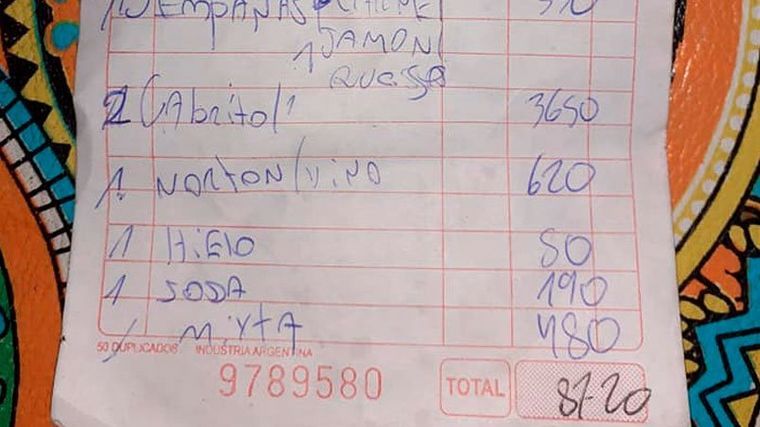 EMPANAS/CARNE
1 JAMON/
QUESSO
2 CABrito/1 3650
1 NORTON/VINO 620
1 HIElO 50
1 SODA 190
1 MiXTA 480
50 DUPLICADOS INDUSTRIA ARGENTINA
9789580
TOTAL